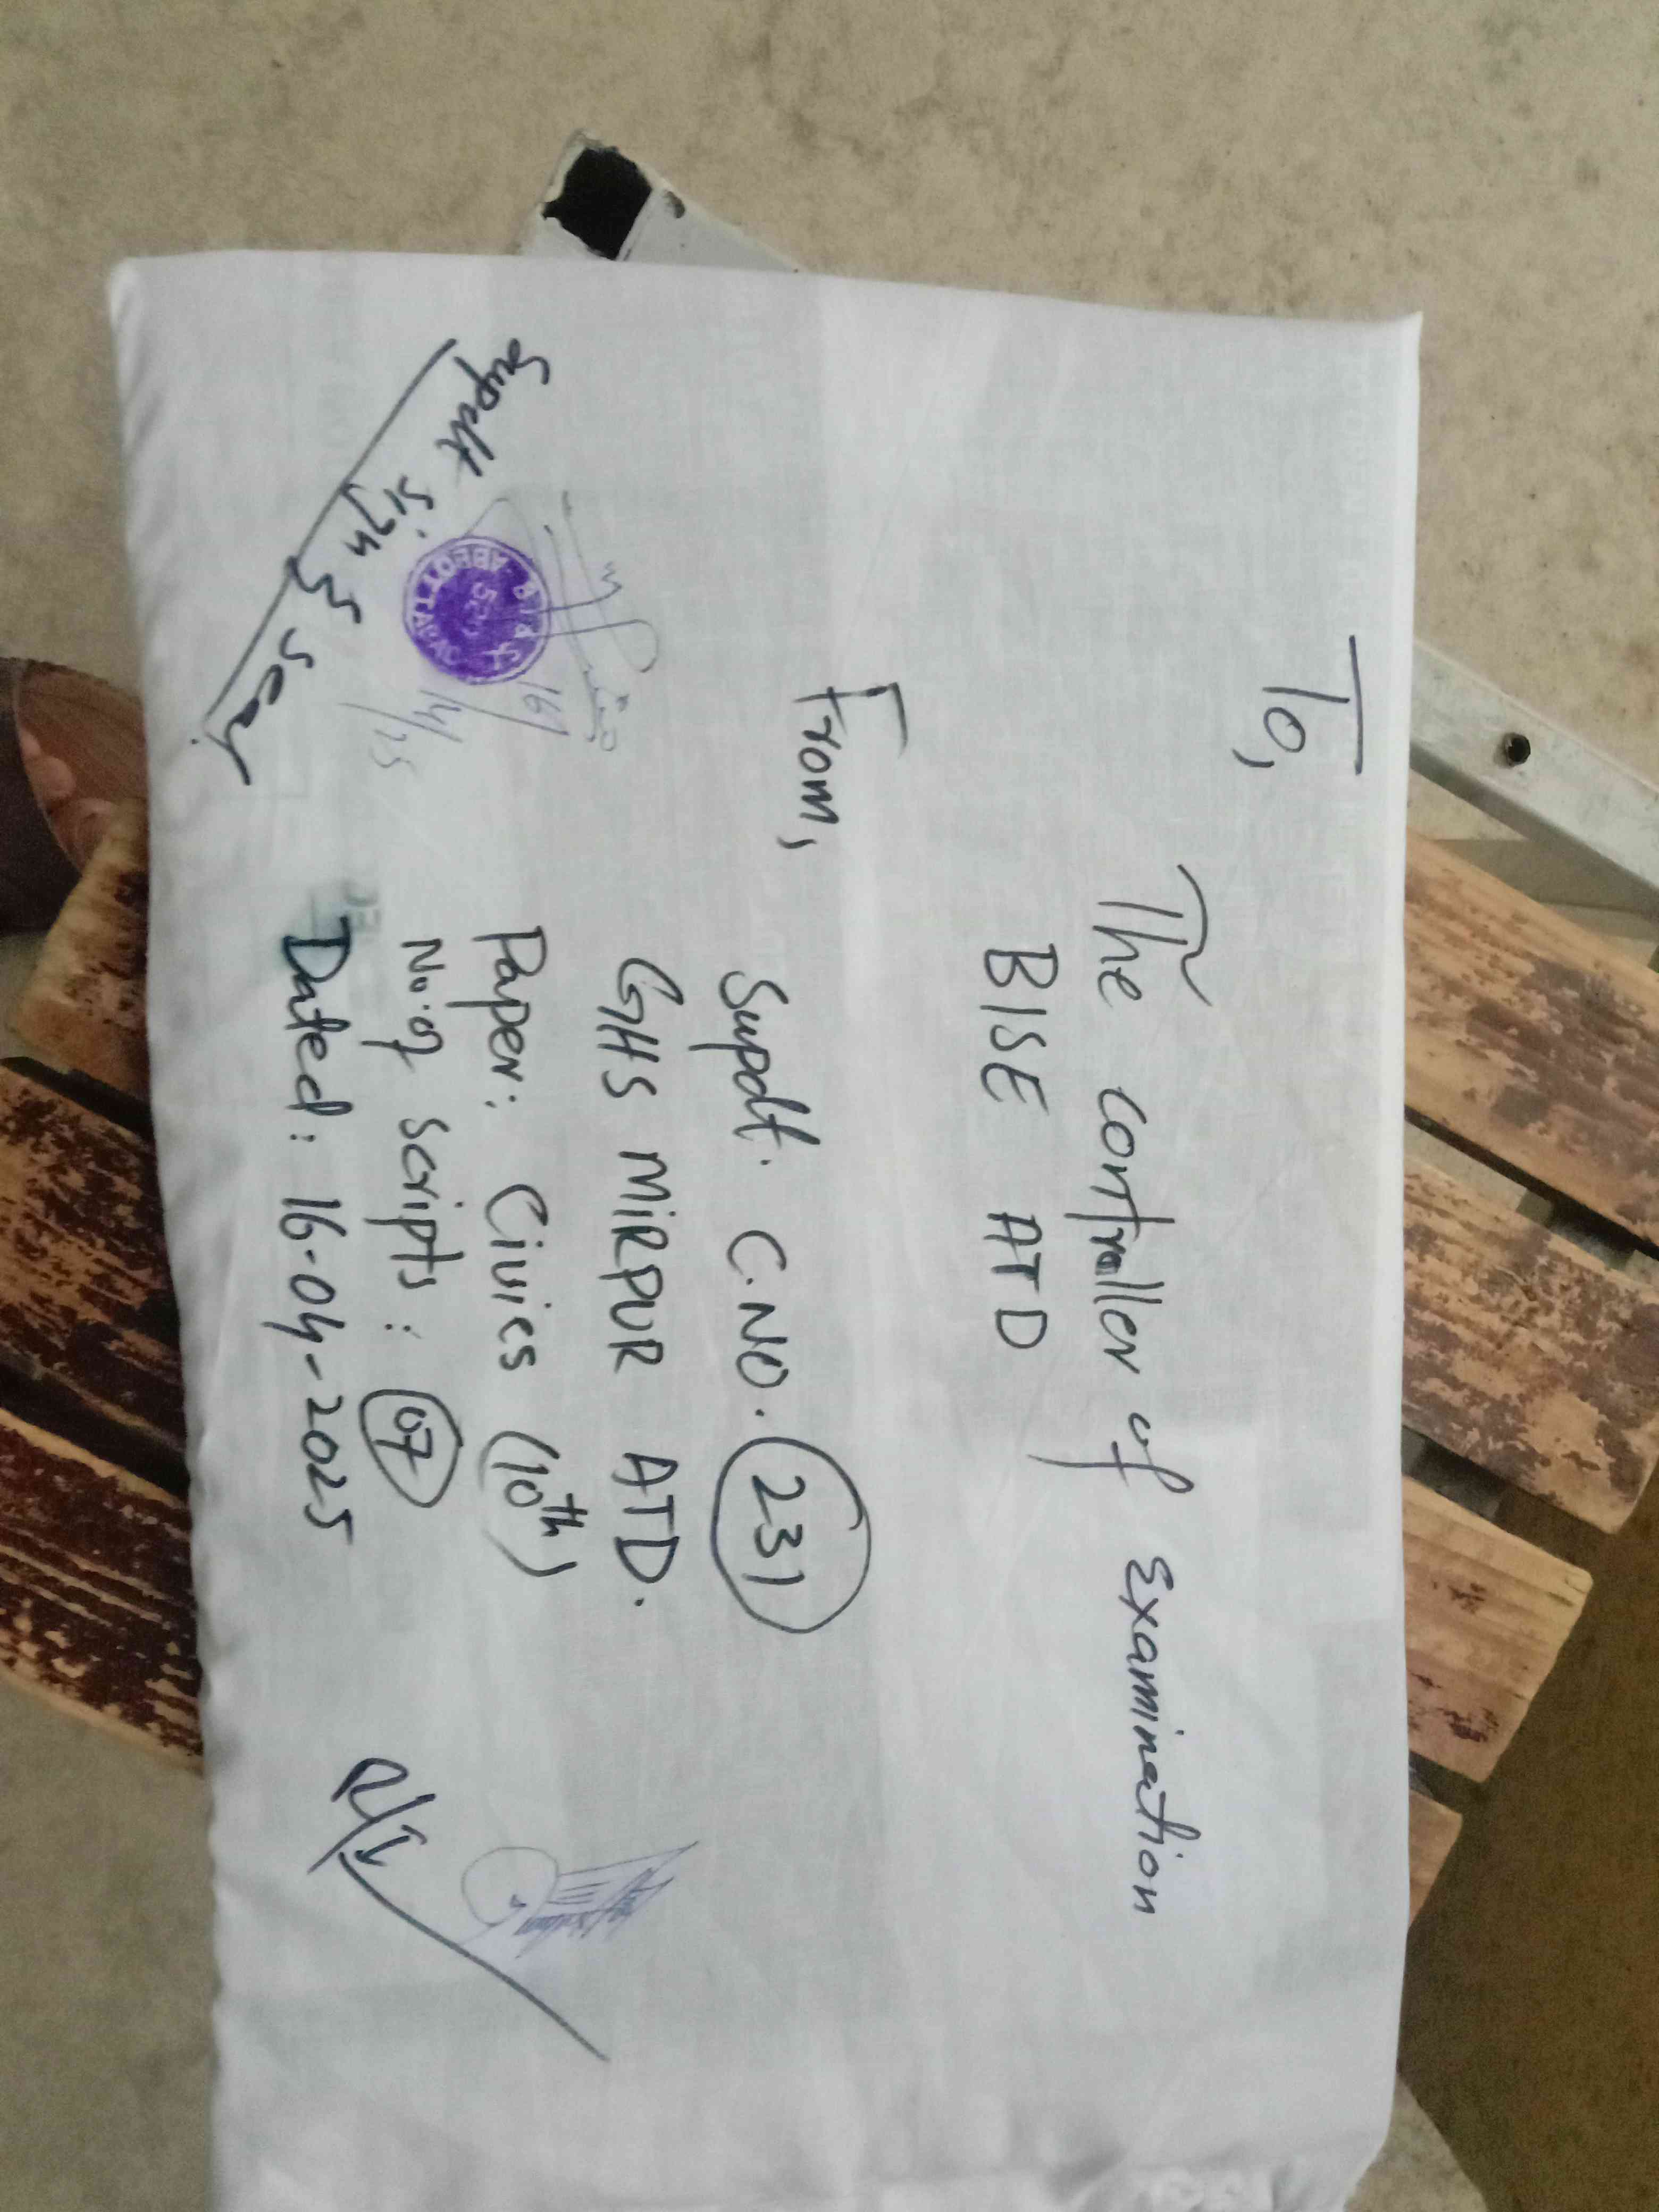 To,
The Controller of Examination
BISE ATD
From,
Supdt. C.NO. 231
GHS MIRPUR ATD.
Paper: Civics (10th)
No. of scripts: 07
Dated: 16-04-2025
Supdt Sign & Seal
16/4/25
ABBOTTABAD
D/I